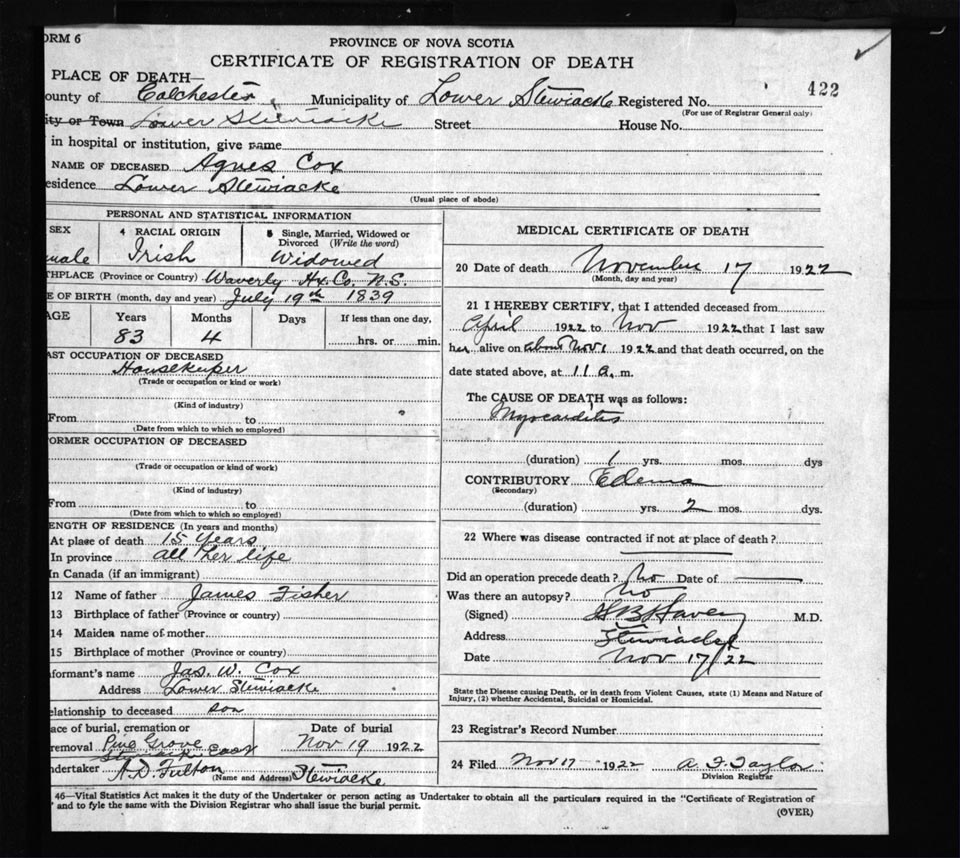 ORM 6
PROVINCE OF NOVA SCOTIA
CERTIFICATE OF REGISTRATION OF DEATH
422
PLACE OF DEATH—
ounty of Colchester Municipality of Lower Stewiacke Registered No.
(For use of Registrar General only)
ity or Town Lower Stewiacke Street House No.
in hospital or institution, give name
NAME OF DECEASED Agnes Cox
esidence Lower Stewiacke
(Usual place of abode)
PERSONAL AND STATISTICAL INFORMATION
SEX 4 RACIAL ORIGIN 5 Single, Married, Widowed or
Divorced (Write the word)
male Irish Widowed
THPLACE (Province or Country) Waverly Hx. Co. N.S.
E OF BIRTH (month, day and year) July 19th 1839
AGE Years Months Days If less than one day,
83 4 hrs. or min.
AST OCCUPATION OF DECEASED
Housekeeper
(Trade or occupation or kind or work)
(Kind of industry)
From to
(Date from which to which so employed)
ORMER OCCUPATION OF DECEASED
(Trade or occupation or kind of work)
(Kind of industry)
From to
(Date from which to which so employed)
ENGTH OF RESIDENCE (In years and months)
At place of death 15 Years
In province all her life
In Canada (if an immigrant)
12 Name of father James Fisher
13 Birthplace of father (Province or country)
14 Maiden name of mother
15 Birthplace of mother (Province or country)
nformant's name Jas. W. Cox
Address Lower Stewiacke
elationship to deceased son
ace of burial, cremation or Date of burial
removal Pine Grove Nov 19 1922
Stewiacke East
ndertaker A.D. Fulton (Name and Address) Stewiacke
MEDICAL CERTIFICATE OF DEATH
20 Date of death November 17 1922
(Month, day and year)
21 I HEREBY CERTIFY, that I attended deceased from
April 1922 to Nov 1922 that I last saw
her alive on about Nov 1 1922 and that death occurred, on the
date stated above, at 11 a. m.
The CAUSE OF DEATH was as follows:
Myocarditis
(duration) 1 yrs. mos. dys
CONTRIBUTORY Edema
(Secondary)
(duration) yrs. 2 mos. dys.
22 Where was disease contracted if not at place of death?
Did an operation precede death? No Date of
Was there an autopsy? No
(Signed) M.D.
Address Stewiacke
Date Nov 17/22
State the Disease causing Death, or in death from Violent Causes, state (1) Means and Nature of
Injury, (2) whether Accidental, Suicidal or Homicidal.
23 Registrar's Record Number
24 Filed Nov 17 1922 A. F. Taylor
Division Registrar
46—Vital Statistics Act makes it the duty of the Undertaker or person acting as Undertaker to obtain all the particulars required in the "Certificate of Registration of
' and to fyle the same with the Division Registrar who shall issue the burial permit.
(OVER)